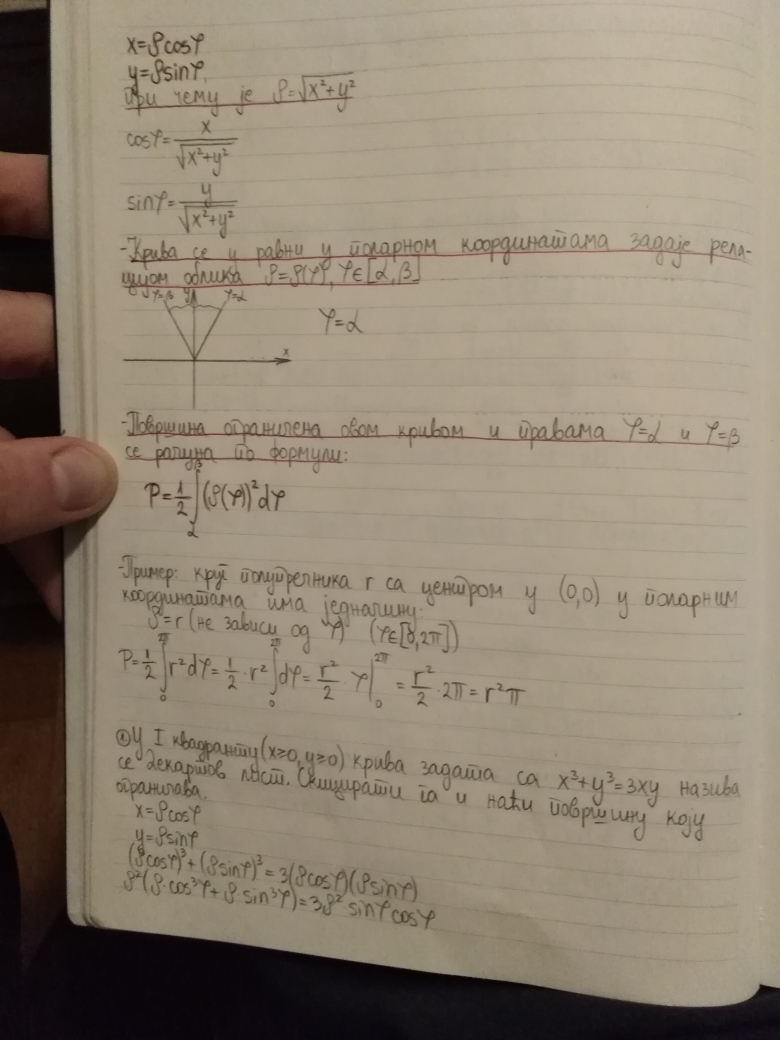 x=ρcosφ
y=ρsinφ,
при чему је ρ=√(x²+y²)
cosφ=x/√(x²+y²)
sinφ=y/√(x²+y²)
-Крива се у равни у поларном координатама задаје рела-
цијом облика ρ=ρ(φ), φ∈[α,β]
φ=β y φ=α
φ=α
x
-Површина ограничена овом кривом и правама φ=α и φ=β
се рачуна по формули:
P=1/2 ∫_α^β (ρ(φ))²dφ
-Пример: круг полупречника r са центром у (0,0) у поларним
координатама има једначину:
ρ=r (не зависи од φ) (φ∈[0,2π])
P=1/2 ∫_0^{2π} r²dφ=1/2·r² ∫_0^{2π} dφ=r²/2·φ|_0^{2π}=r²/2·2π=r²π
① У I квадранту (x≥0, y≥0) крива задата са x³+y³=3xy назива
се Декартов лист. Скицирати га и наћи површину коју
ограничава.
x=ρcosφ
y=ρsinφ
(ρcosφ)³+(ρsinφ)³=3(ρcosφ)(ρsinφ)
ρ²(ρ·cos³φ+ρ·sin³φ)=3ρ² sinφcosφ